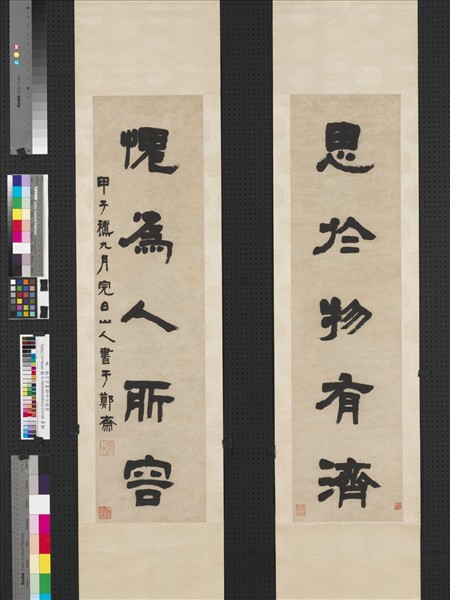 思於物有濟
愧為人所容
甲子龝九月完白山人書于鄭齋